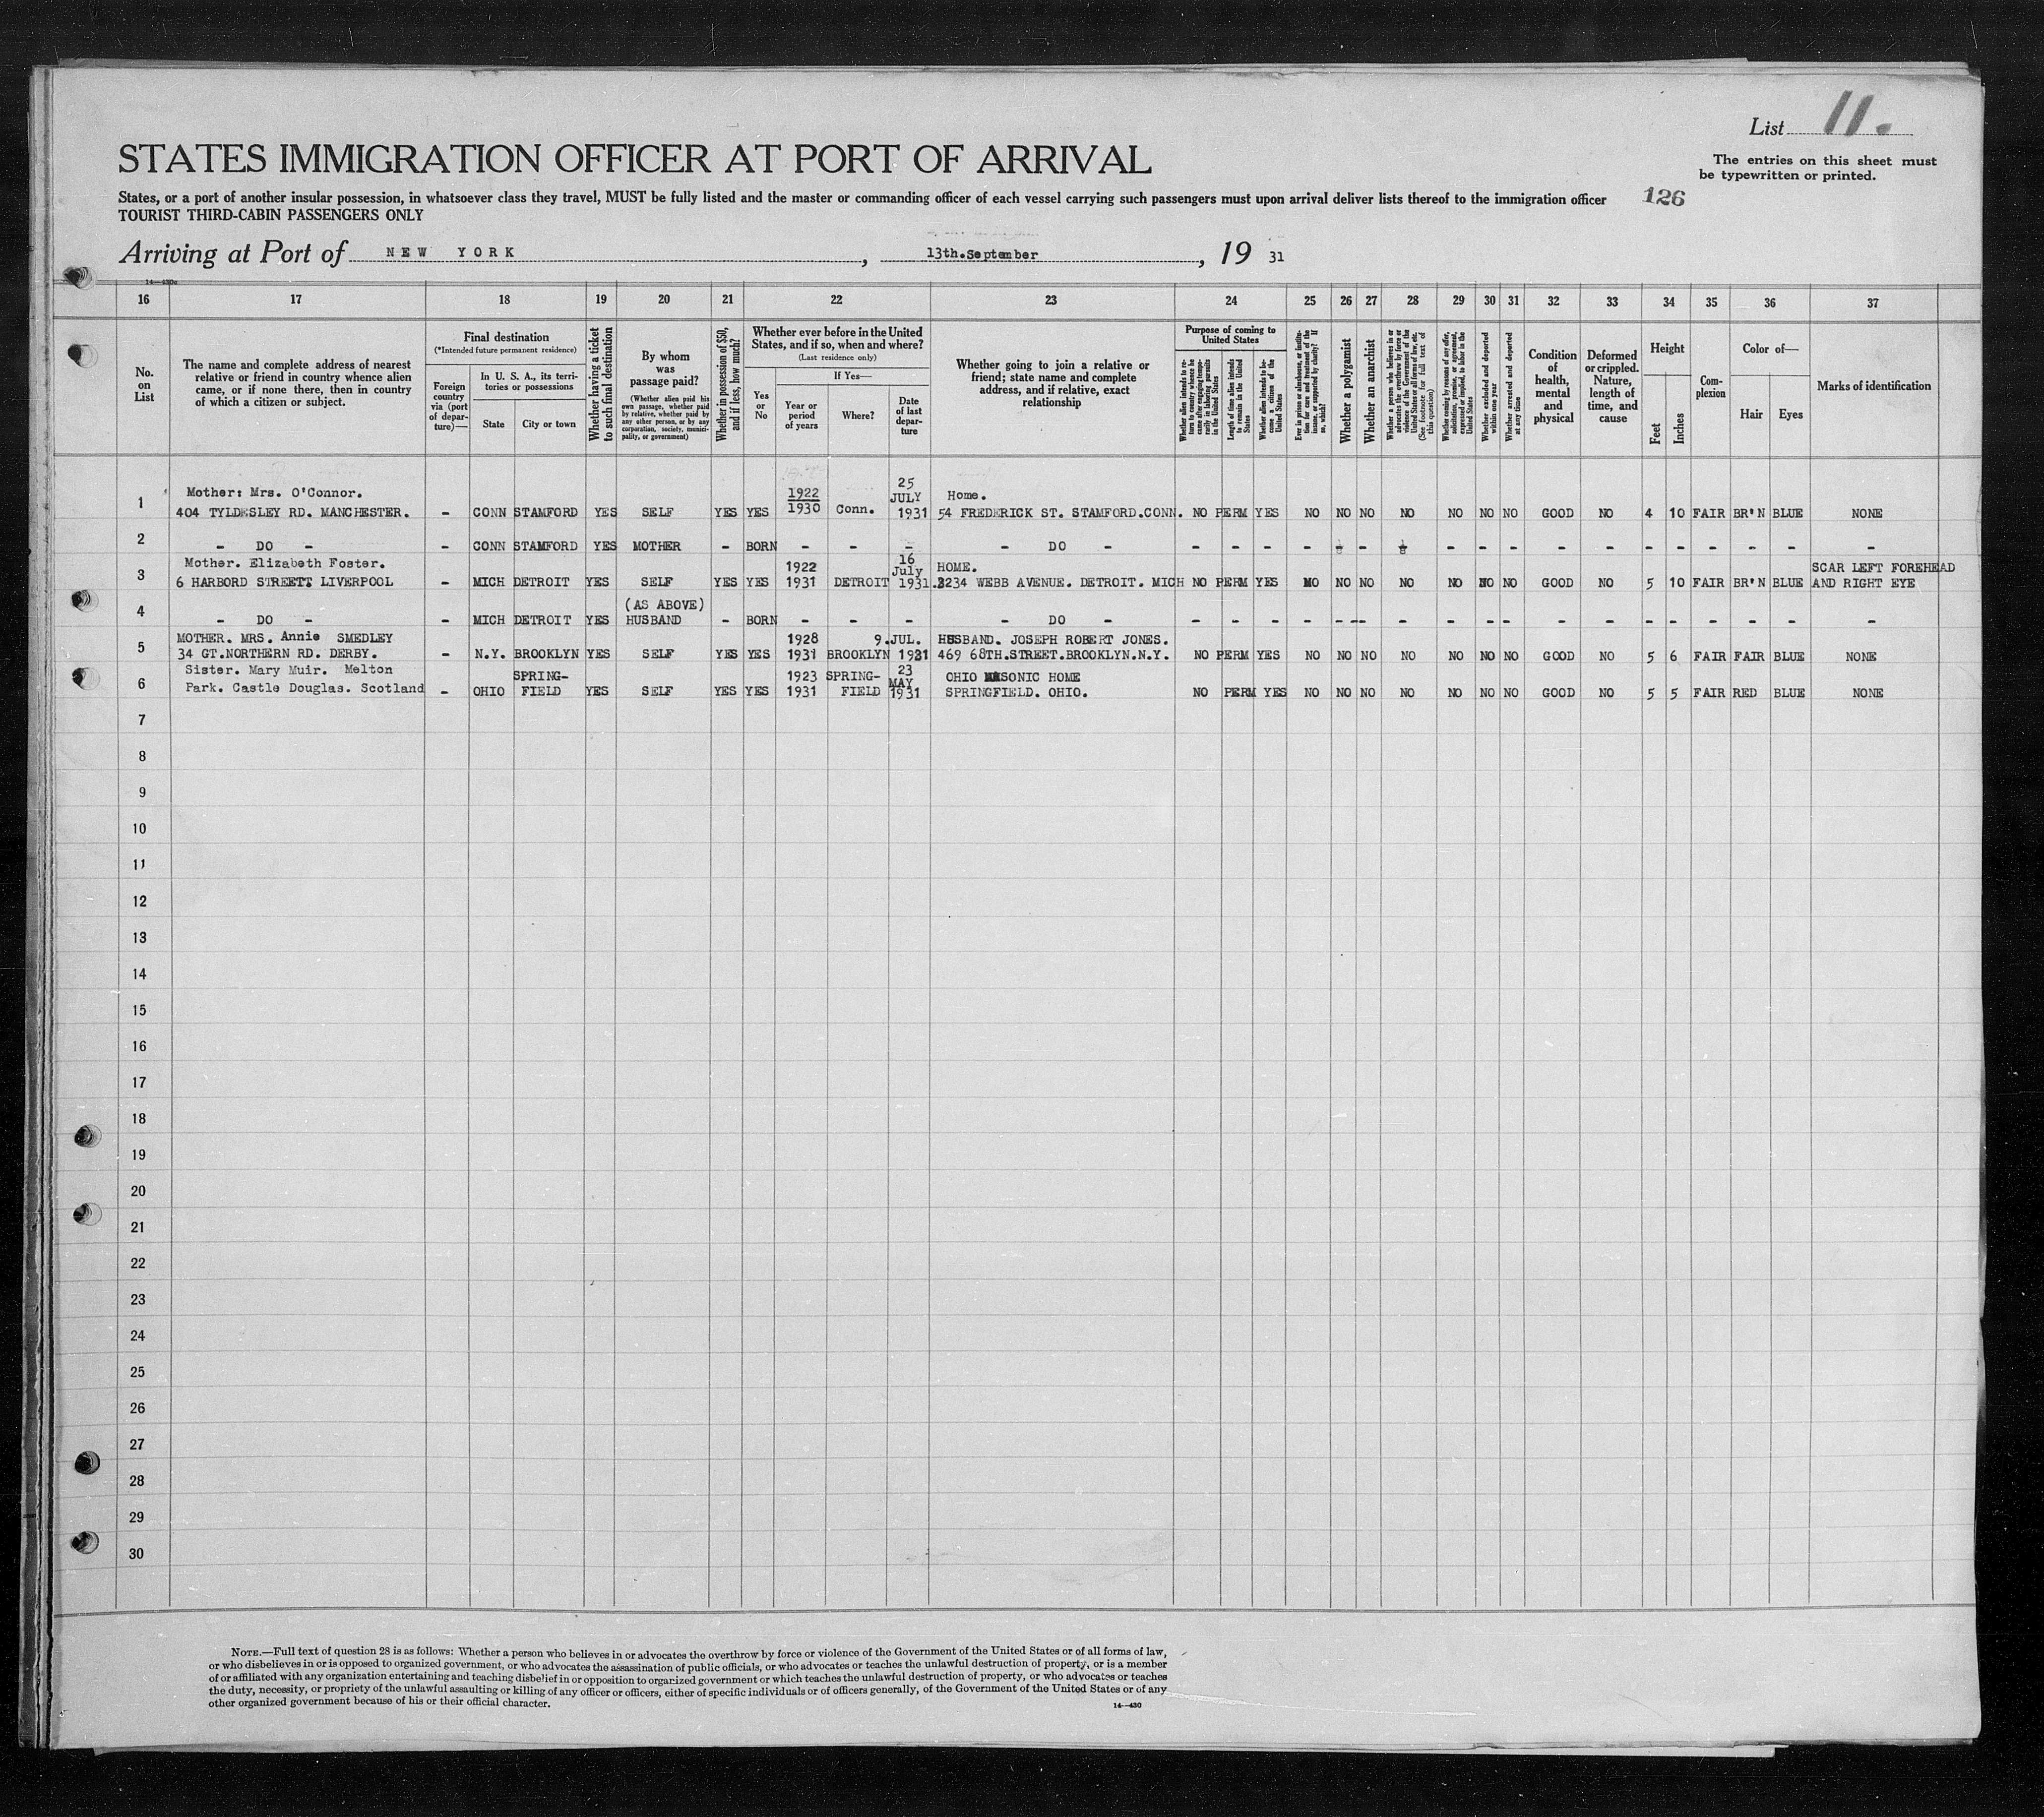 List 11.
STATES IMMIGRATION OFFICER AT PORT OF ARRIVAL
The entries on this sheet must
be typewritten or printed.
States, or a port of another insular possession, in whatsoever class they travel, MUST be fully listed and the master or commanding officer of each vessel carrying such passengers must upon arrival deliver lists thereof to the immigration officer
126
TOURIST THIRD-CABIN PASSENGERS ONLY
Arriving at Port of NEW YORK, 13th.September, 19 31
16 17 18 19 20 21 22 23 24 25 26 27 28 29 30 31 32 33 34 35 36 37
No. on List
The name and complete address of nearest relative or friend in country whence alien came, or if none there, then in country of which a citizen or subject.
Final destination
(*Intended future permanent residence)
Foreign country via (port of departure)—
In U. S. A., its territories or possessions
State
City or town
Whether having a ticket to such final destination
By whom was passage paid?
(Whether alien paid his own passage, whether paid by relative, whether paid by any other person, or by any corporation, society, municipality, or government)
Whether in possession of $50, and if less, how much?
Whether ever before in the United States, and if so, when and where?
(Last residence only)
Yes or No
If Yes—
Year or period of years
Where?
Date of last departure
Whether going to join a relative or friend; state name and complete address, and if relative, exact relationship
Purpose of coming to United States
Whether alien intends to return to country whence he came after engaging temporarily in laboring pursuits in the United States
Length of time alien intends to remain in the United States
Whether alien intends to become a citizen of the United States
Ever in prison or almshouse, or institution for care and treatment of the insane, or supported by charity? If so, which?
Whether a polygamist
Whether an anarchist
Whether a person who believes in or advocates the overthrow by force or violence of the Government of the United States or all forms of law, etc. (See footnote for full text of this question)
Whether coming by reasons of any offer, solicitation, promise, or agreement, expressed or implied, to labor in the United States
Whether excluded and deported within one year
Whether arrested and deported at any time
Condition of health, mental and physical
Deformed or crippled. Nature, length of time, and cause
Height
Feet
Inches
Complexion
Color of—
Hair
Eyes
Marks of identification
1 Mother: Mrs. O'Connor. 1922 25 JULY Home.
404 TYLDESLEY RD. MANCHESTER. - CONN STAMFORD YES SELF YES YES 1930 Conn. 1931 54 FREDERICK ST. STAMFORD.CONN. NO PERM YES NO NO NO NO NO NO NO GOOD NO 4 10 FAIR BR'N BLUE NONE
2 - DO - - CONN STAMFORD YES MOTHER - BORN - - - - DO - - - - - - - - - - - - - - - - - - -
3 Mother. Elizabeth Foster. 1922 16 July HOME. SCAR LEFT FOREHEAD
6 HARBORD STREET. LIVERPOOL - MICH DETROIT YES SELF YES YES 1931 DETROIT 1931. 3234 WEBB AVENUE. DETROIT. MICH NO PERM YES NO NO NO NO NO NO NO GOOD NO 5 10 FAIR BR'N BLUE AND RIGHT EYE
4 (AS ABOVE)
- DO - - MICH DETROIT YES HUSBAND - BORN - - - - DO - - - - - - - - - - - - - - - - - - -
5 MOTHER. MRS. Annie SMEDLEY 1928 9.JUL. HUSBAND. JOSEPH ROBERT JONES.
34 GT.NORTHERN RD. DERBY. - N.Y. BROOKLYN YES SELF YES YES 1931 BROOKLYN 1931 469 68TH.STREET.BROOKLYN.N.Y. NO PERM YES NO NO NO NO NO NO NO GOOD NO 5 6 FAIR FAIR BLUE NONE
6 Sister. Mary Muir. Melton SPRING- 1923 SPRING- 23 MAY OHIO MASONIC HOME
Park. Castle Douglas. Scotland - OHIO FIELD YES SELF YES YES 1931 FIELD 1931 SPRINGFIELD. OHIO. NO PERM YES NO NO NO NO NO NO NO GOOD NO 5 5 FAIR RED BLUE NONE
7
8
9
10
11
12
13
14
15
16
17
18
19
20
21
22
23
24
25
26
27
28
29
30
NOTE.—Full text of question 28 is as follows: Whether a person who believes in or advocates the overthrow by force or violence of the Government of the United States or of all forms of law,
or who disbelieves in or is opposed to organized government, or who advocates the assassination of public officials, or who advocates or teaches the unlawful destruction of property, or is a member
of or affiliated with any organization entertaining and teaching disbelief in or opposition to organized government or which teaches the unlawful destruction of property, or who advocates or teaches
the duty, necessity, or propriety of the unlawful assaulting or killing of any officer or officers, either of specific individuals or of officers generally, of the Government of the United States or of any
other organized government because of his or their official character.
14—430